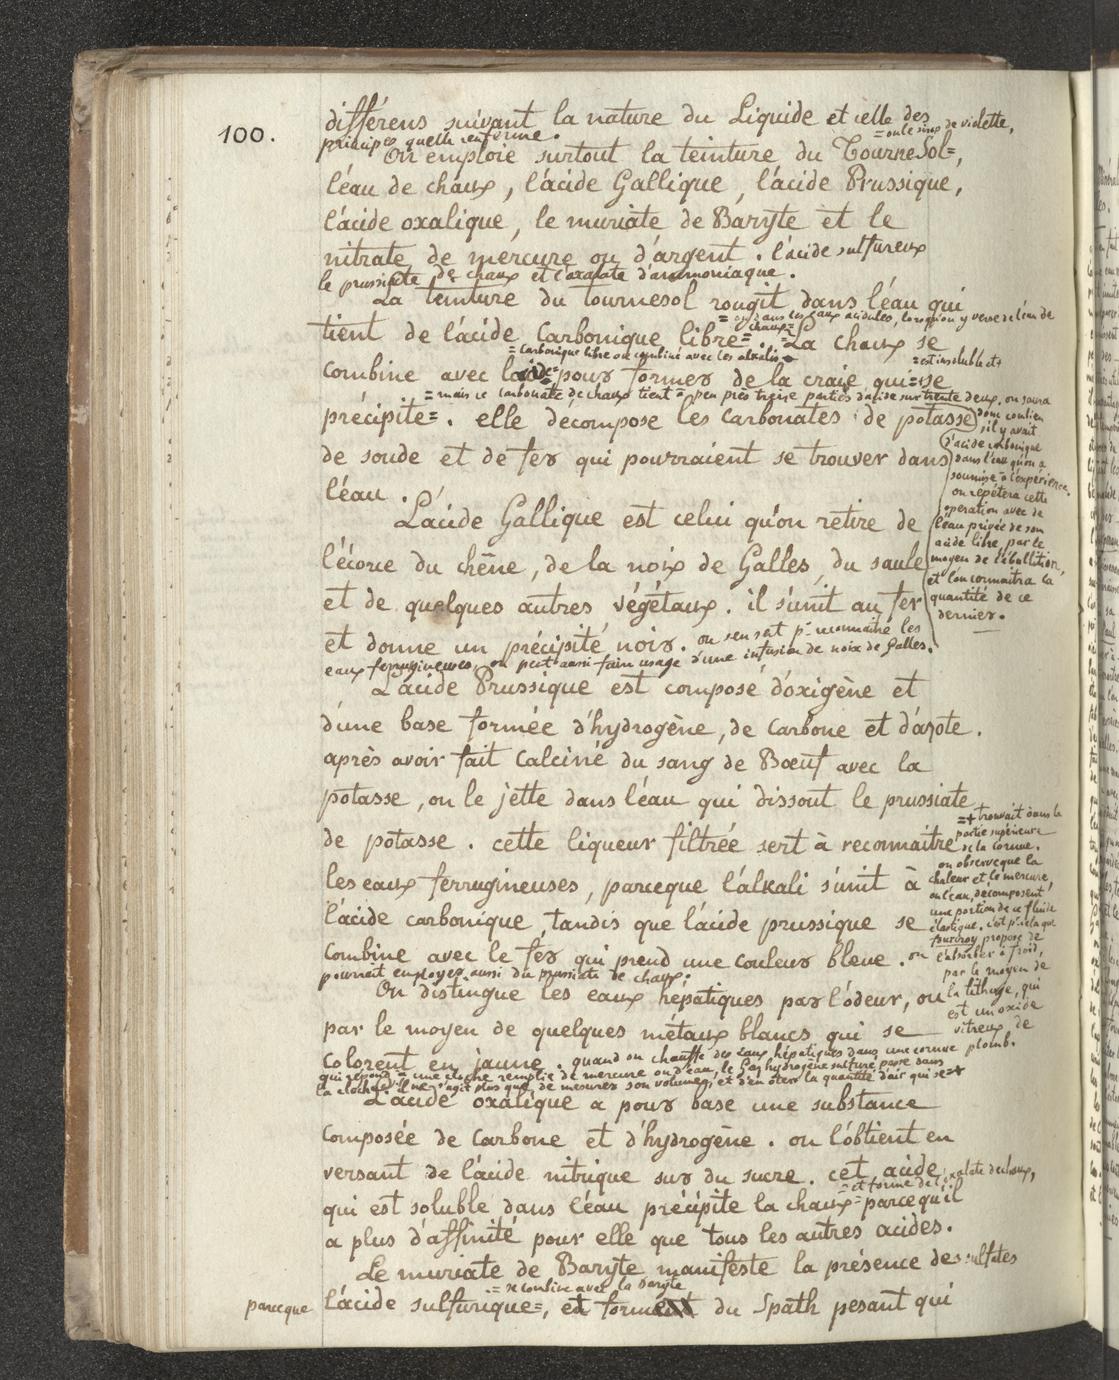 100.
différens suivant la nature du Liquide et celle des
principes quelle renferme.
= ou le sirop de violette,
On emploie surtout la teinture du TourneSol=,
l'éau de chaux, l'ácide Gallique, l'ácide Prussique,
l'ácide oxalique, le muriate de Baryte et le
nitrate de mercure ou d'argent. l'ácide sulfureux
le prussiate de chaux et l'oxalate d'ammoniaque.
La teinture du tournesol rougit dans l'éau qui
= ou dans les eaux acidules, lorsqu'on y verse de l'éau de
chaux=
tient de l'ácide Carbonique libre=. La chaux se
= Carbonique libre ou combiné avec les alkalis
= est insoluble et+
Combine avec l'acide= pour former de la craie qui= se
= mais le Carbonate de chaux tient à peu près treize parties d'acide sur trente deux, on saura
précipite=. elle décompose les Carbonates de potasse
donc combien
s'il y avait
d'acide carbonique
dans l'eau qu'on a
soumise à l'expérience.
on repétera cette
opération avec de
l'eau privée de son
acide libre, par le
moyen de l'ébullition,
et l'on connaitra la
quantité de ce
dernier.
de soude et de fer qui pourraient se trouver dans
l'éau.
L'acide Gallique est celui qu'on retire de
l'écorce du chêne, de la noix de Galles, du saule
et de quelques autres végétaux. il s'unit au fer
et donne un précipité noir. on s'en sert pr. reconnaitre les
eaux ferrugineuses, on peut aussi faire usage d'une infusion de noix de Galles.
L'ácide Prussique est composé d'oxigène et
d'une base formée d'hydrogène, de Carbone et d'azote.
après avoir fait Calciné du sang de Bœuf avec la
potasse, on le jette dans l'éau qui dissout le prussiate
de potasse. cette liqueur filtrée sert à reconnaitre
les eaux ferrugineuses, parceque l'alkali s'unit à
l'ácide carbonique, tandis que l'ácide prussique se
Combine avec le fer qui prend une couleur bleue. on
pourrait employer aussi du prussiate de chaux.
=+ trouvait dans la
partie supérieure
de la cornue.
on observe que la
chaleur et le mercure,
ou l'eau, décomposent
une portion de ce fluide
élastique. c'est pr. cela que
fourcroy propose de
l'absorber à froid,
par le moyen de
la litharge, qui
est un oxide
vitreux de
plomb.
On distingue les eaux hépatiques par l'odeur, ou
par le moyen de quelques métaux blancs qui se
colorent en jaune. quand on chauffe des eaux hépatiques dans une cornue
qui répond à une cloche remplie de mercure ou d'eau, le Gaz hydrogène sulfuré passe dans
la cloche. il ne s'agit plus que de mesurer son volume, et d'en ôter la quantité d'air qui se=+
L'ácide oxalique a pour base une substance
Composée de Carbone et d'hydrogène. on l'obtient en
versant de l'ácide nitrique sur du sucre. cet acide
= et forme de l'oxalate de chaux,
qui est soluble dans l'éau précipite la chaux= parcequ'il
a plus d'affinité pour elle que tous les autres acides.
Le muriate de Baryte manifeste la présence des sulfates
= se combine avec la Baryte
parceque l'ácide sulfurique=, et forme du Spath pesant qui